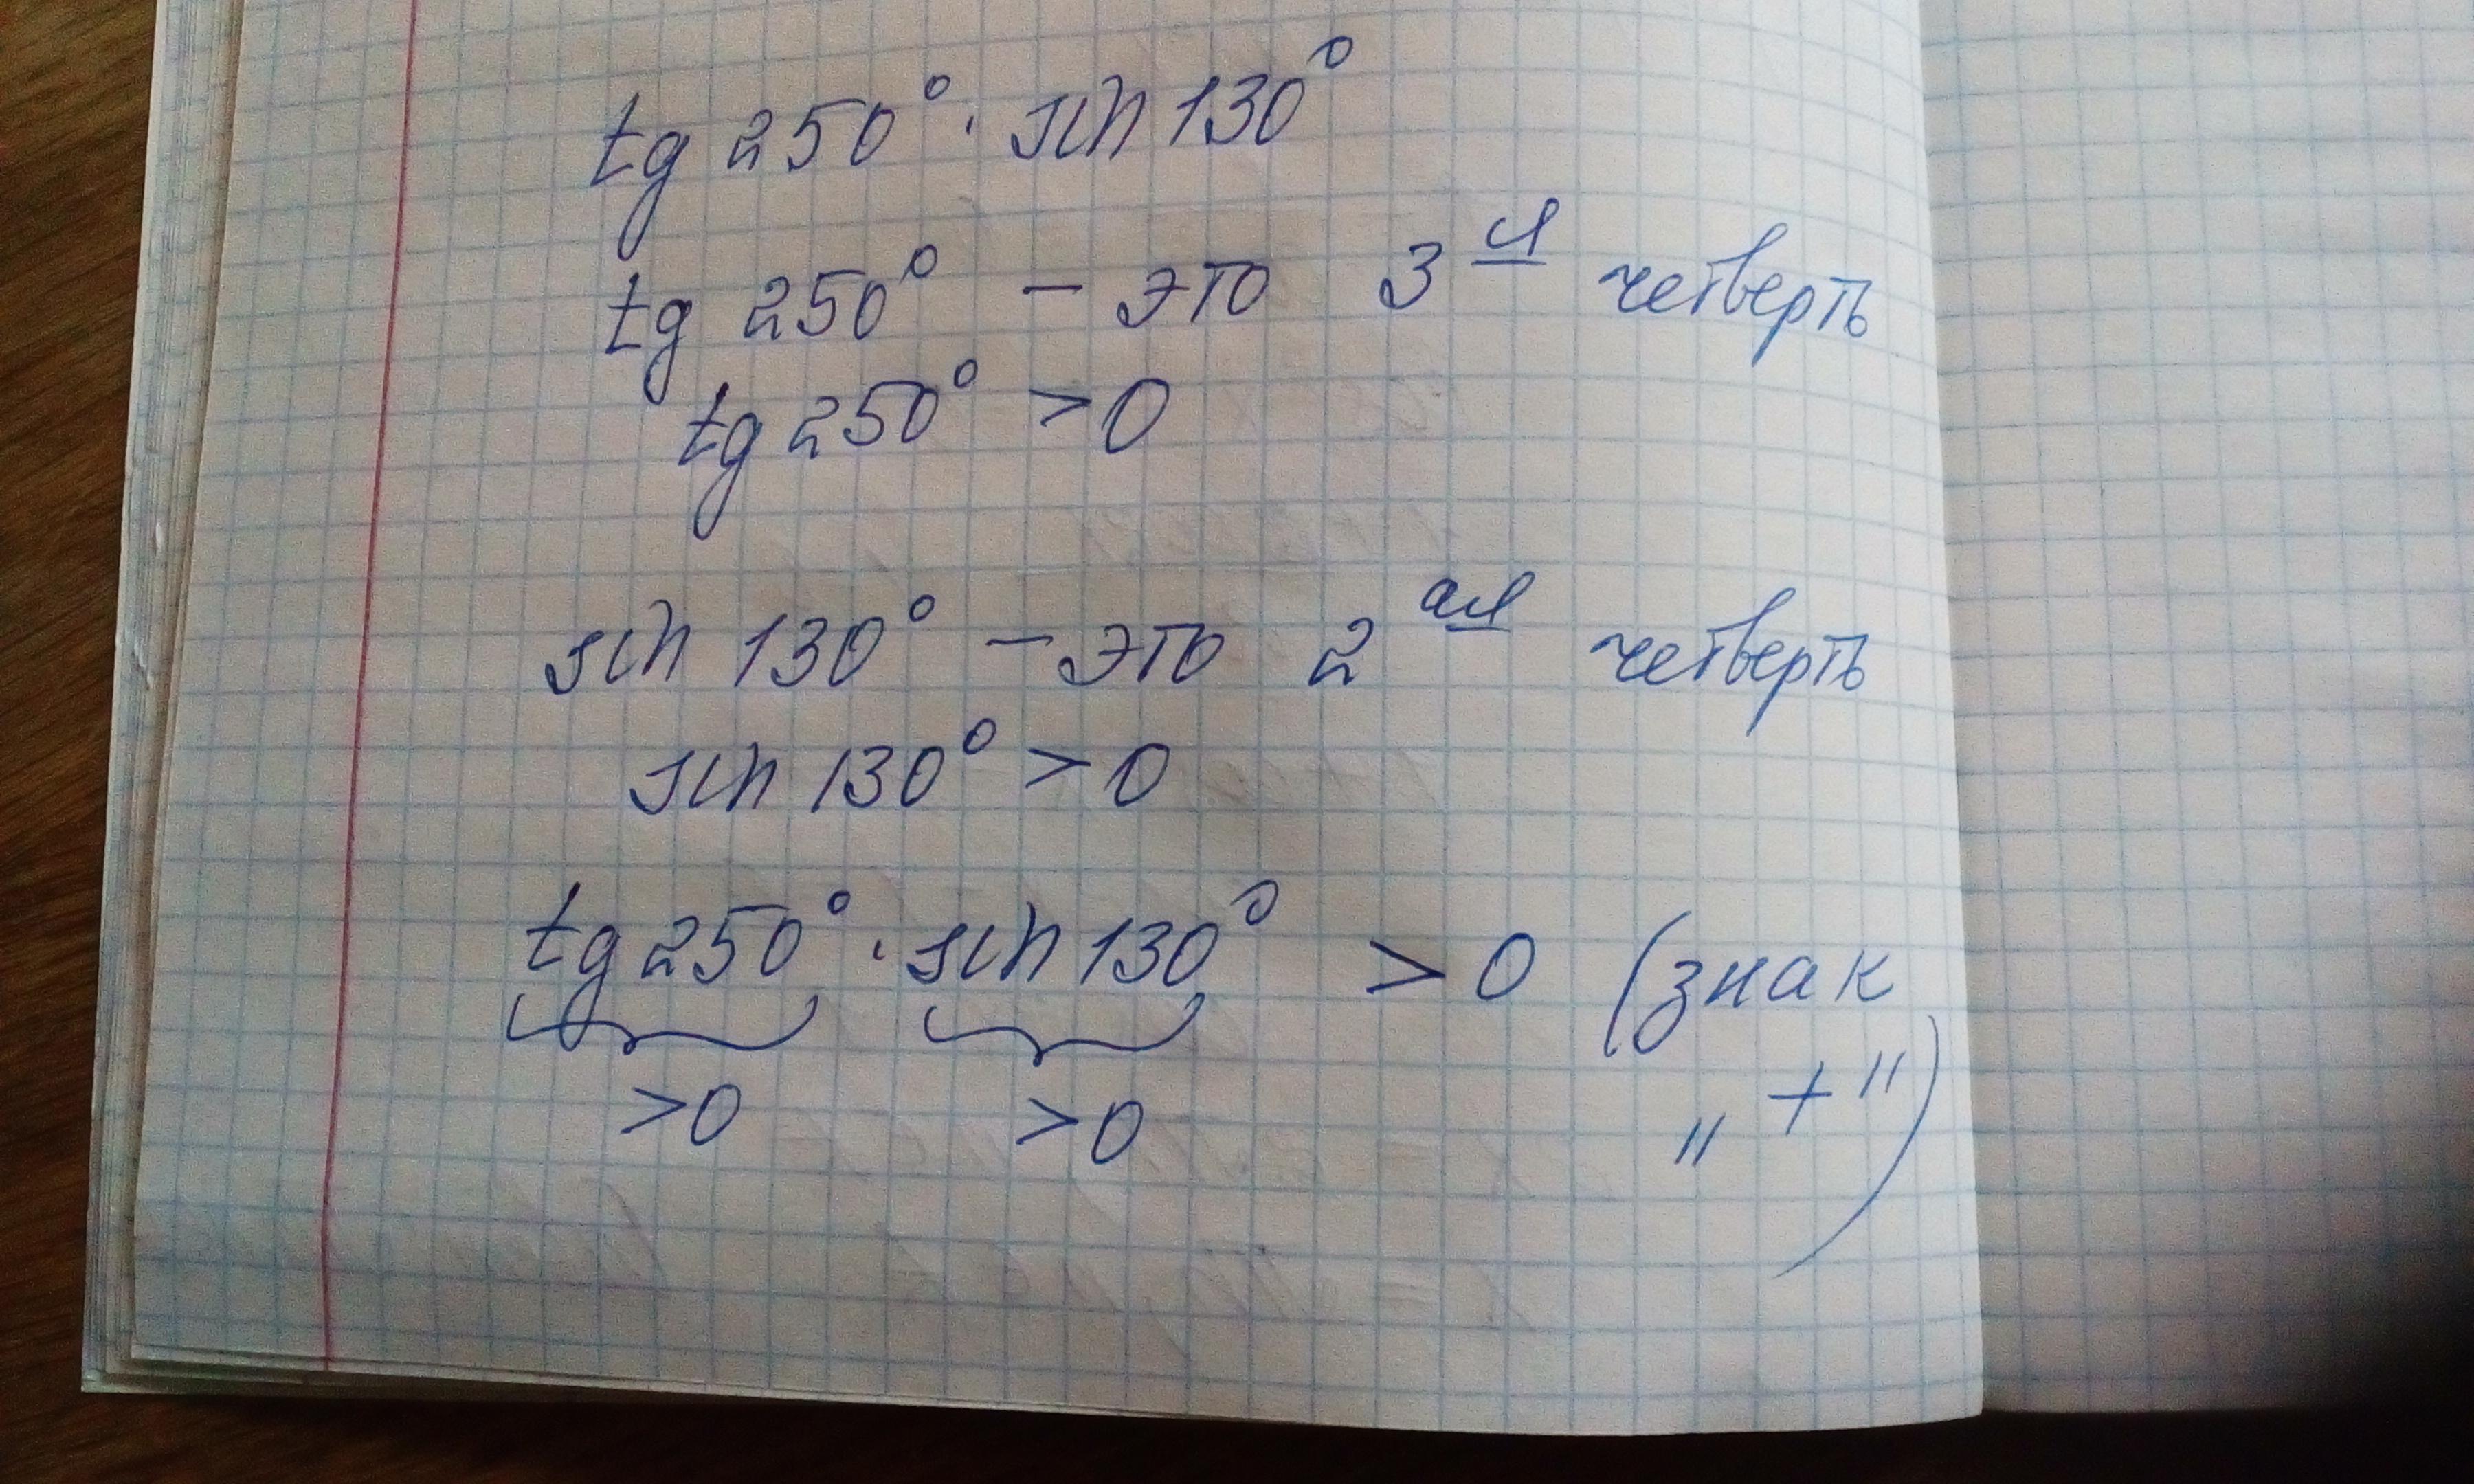 tg 250° · sin 130°
tg 250° – это 3 ья четверть
tg 250° > 0
sin 130° – это 2 ая четверть
sin 130° > 0
tg 250° · sin 130° > 0 (знак
>0 >0 „ + ")